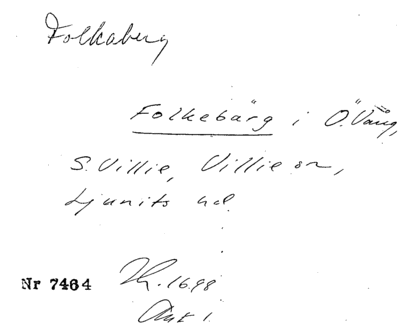 Folkaberg
Folkebärg i Ö. Vång,
S. Villie, Villie sn,
Ljunits hd.
Nr 7464 Th. 1698
Akt 1.